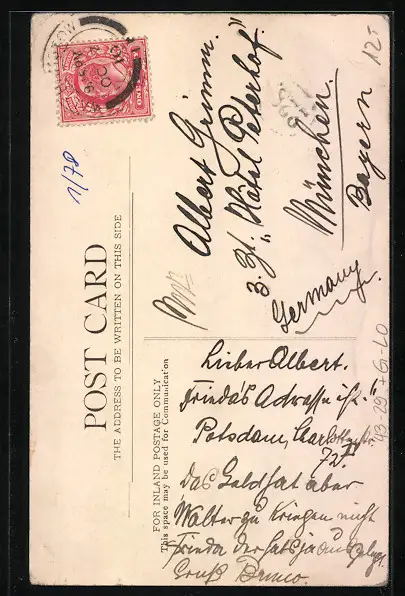 POST CARD
THE ADDRESS TO BE WRITTEN ON THIS SIDE
FOR INLAND POSTAGE ONLY
This space may be used for Communication
1/78
12.-
Albert Grimm.
z. Zt. „Hôtel Peterhof"
München.
Bayern
Germany.
Lieber Albert.
Frieda's Adresse ist „
Potsdam,
72 II
das Geld hat aber
Walter zu kriegen nicht
Frieda der hat's ja
Gruß Bruno.